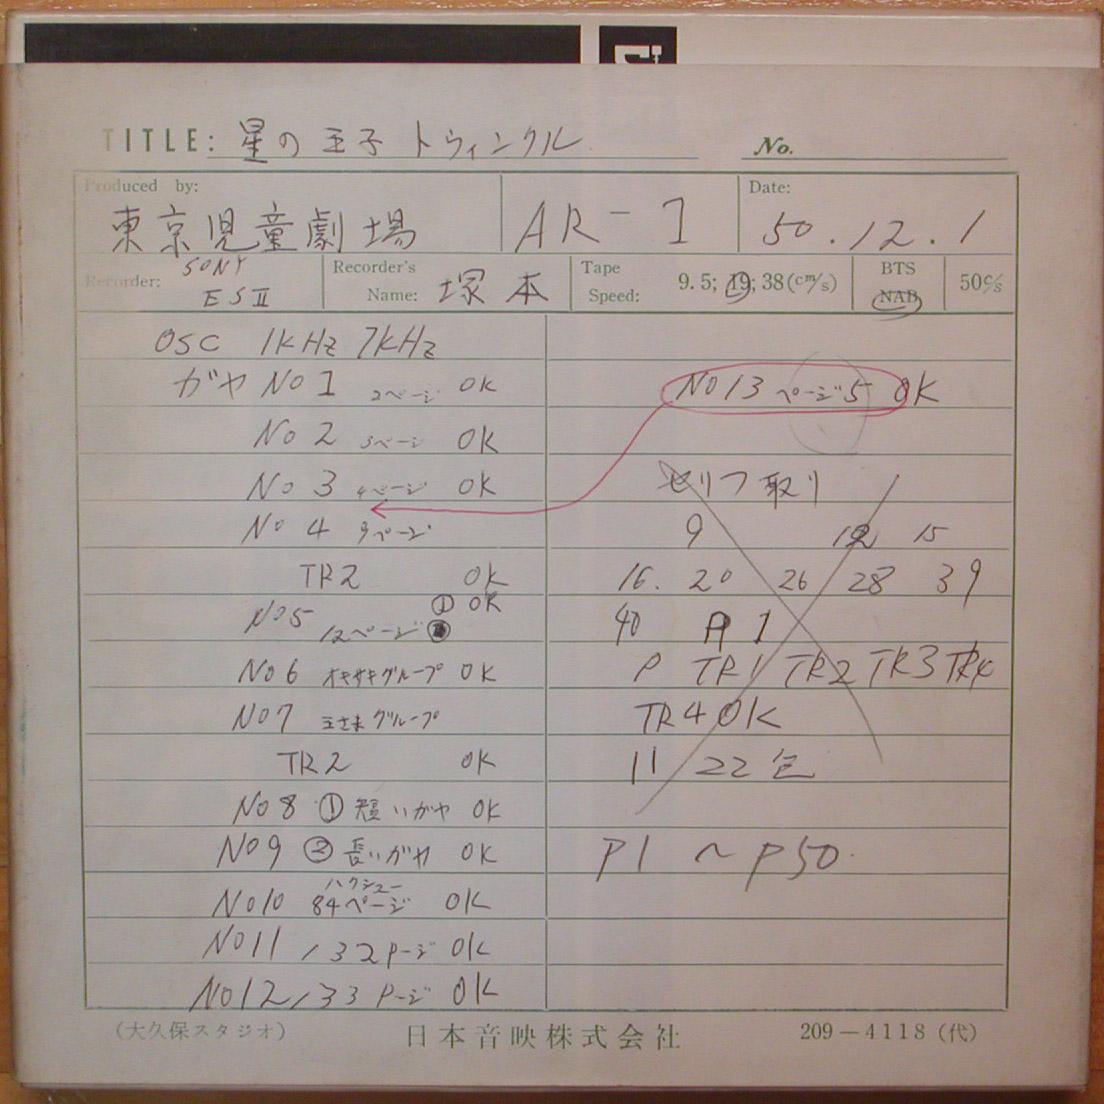 TITLE: 星の王子 トウィンクル No.
Produced by: 東京児童劇場 AR-1 Date: 50.12.1
Recorder: SONY ESⅡ Recorder's Name: 塚本 Tape Speed: 9.5; 19; 38(cm/s) BTS NAB 50c/s
OSC 1KHz 7KHz
ガヤ No 1 2ページ OK
No 2 3ページ OK
No 3 4ページ OK
No 4 9ページ
TR2 OK
No5 12ページ ① OK
No6 オキサキグループ OK
No7 王さまグループ
TR2 OK
No8 ① 短いガヤ OK
No9 ② 長いガヤ OK
No10 ハクシュー 84ページ OK
No11 132Pージ OK
No12 133Pージ OK
No13 ページ5 OK
セリフ取り
9 15
16. 20 26 28 39
40 P 1
P TR1 TR2 TR3 TR4
TR4 OK
11 22
P1 ~ P50
(大久保スタジオ) 日本音映株式会社 209-4118 (代)